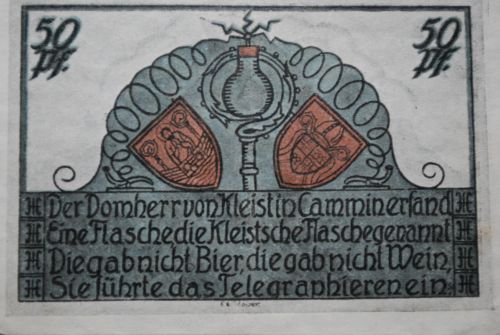 50 Pf. 50 Pf.
Der Domherr von Kleist in Cammin erfand
Eine Flasche die Kleistsche Flasche genannt
Die gab nicht Bier, die gab nicht Wein,
Sie führte das Telegraphieren ein.